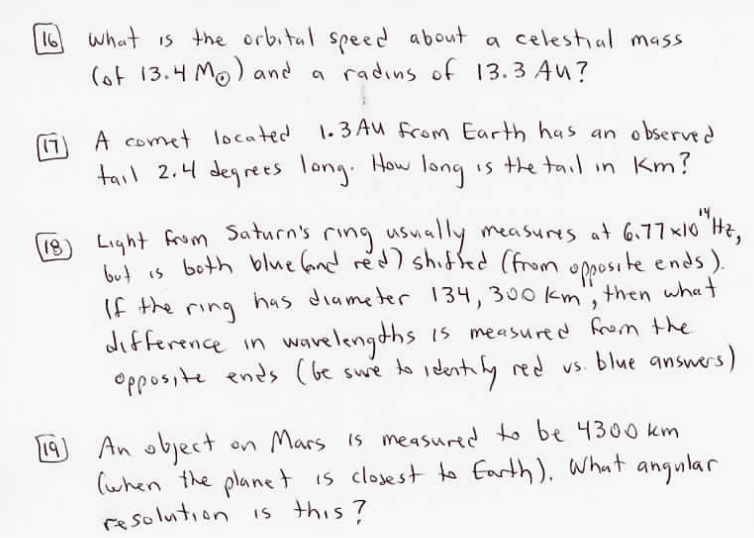 16 What is the orbital speed about a celestial mass
(of 13.4 M⊙) and a radius of 13.3 AU?
17 A comet located 1.3 AU from Earth has an observed
tail 2.4 degrees long. How long is the tail in Km?
18 Light from Saturn's ring usually measures at 6.77x10¹⁴ Hz,
but is both blue (and red) shifted (from opposite ends).
If the ring has diameter 134,300 km, then what
difference in wavelengths is measured from the
opposite ends (be sure to identify red vs. blue answers)
19 An object on Mars is measured to be 4300 km
(when the planet is closest to Earth). What angular
resolution is this?